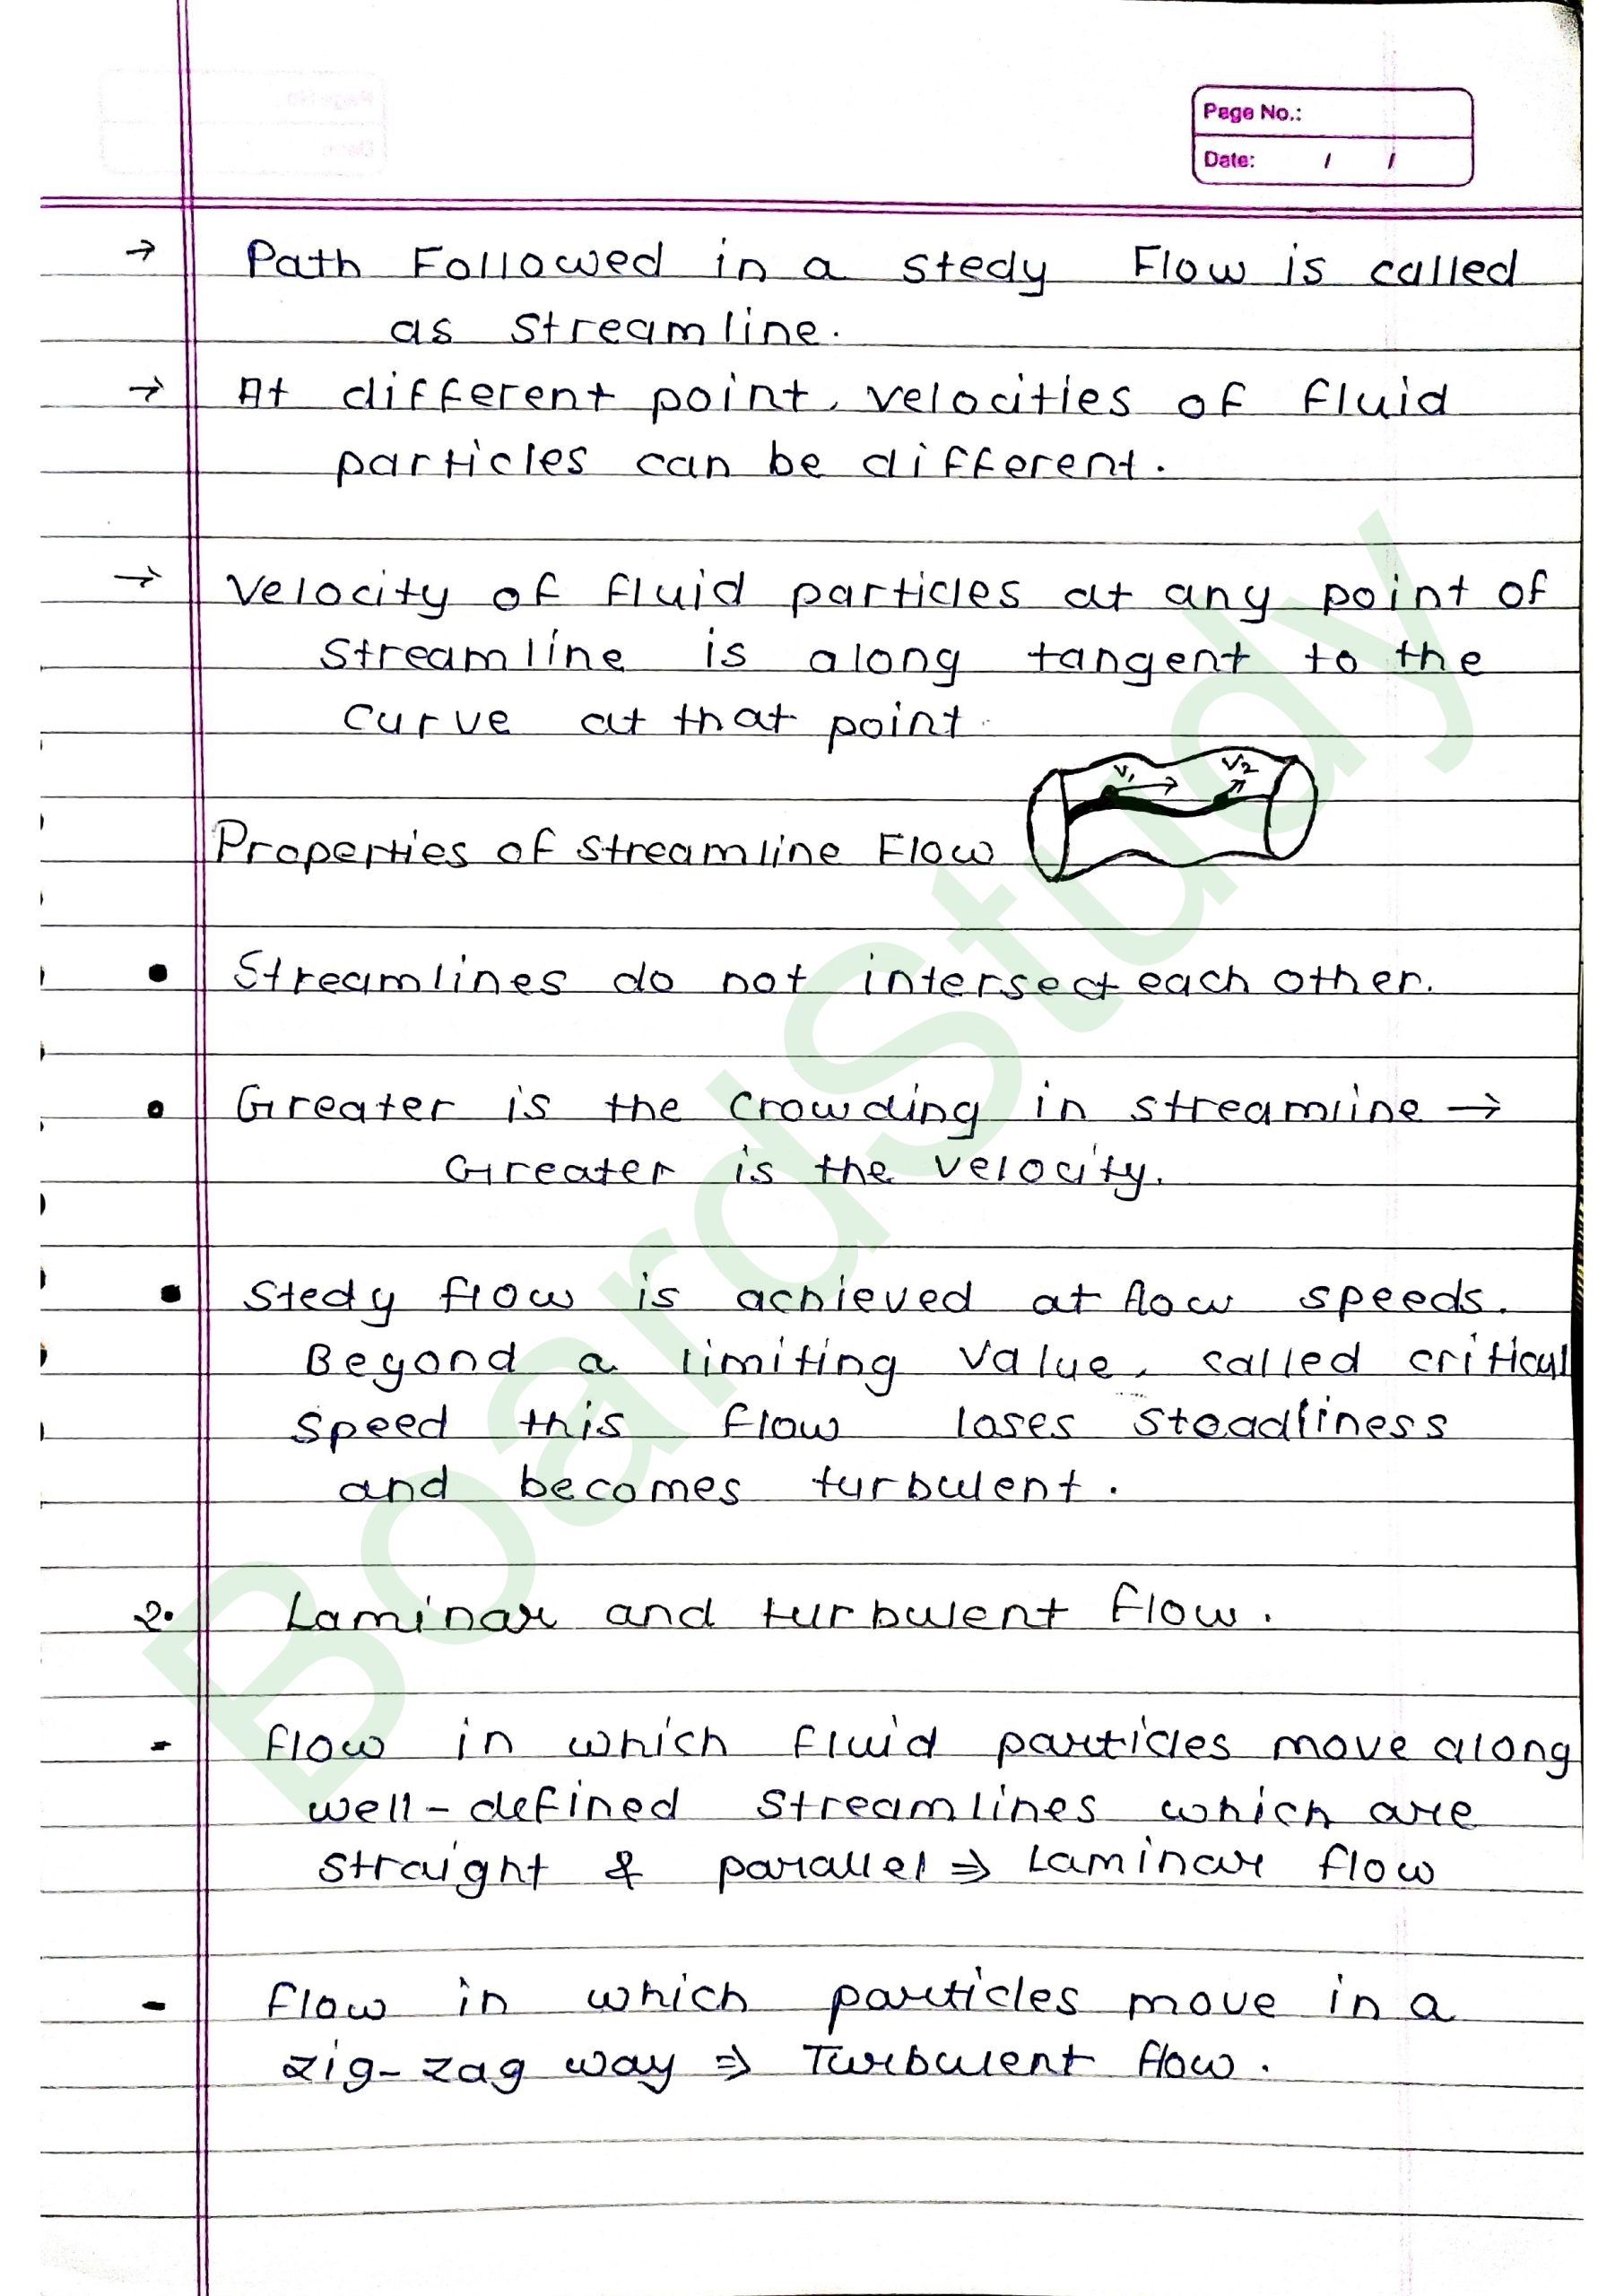 Page No.:
Date: / /
→ Path Followed in a stedy Flow is called
as streamline.
→ At different point, velocities of fluid
particles can be different.
→ Velocity of fluid particles at any point of
streamline is along tangent to the
curve at that point.
V1 V2
Properties of streamline Flow
• Streamlines do not intersect each other.
• Greater is the crowding in streamline →
Greater is the velocity.
• Stedy flow is achieved at flow speeds.
Beyond a limiting value, called critical
speed this flow loses steadliness
and becomes turbulent.
2. Laminar and turbulent flow.
- flow in which fluid particles move along
well-defined streamlines which are
straight & parallel ⇒ Laminar flow
- flow in which particles move in a
zig-zag way ⇒ Turbulent flow.
BoardStudy